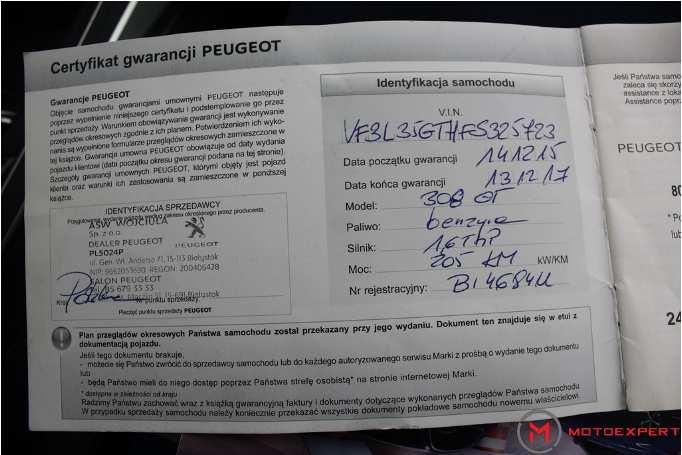 Certyfikat gwarancji PEUGEOT
Gwarancje PEUGEOT
Objęcie samochodu gwarancjami umownymi PEUGEOT następuje
poprzez wypełnienie niniejszego certyfikatu i podstemplowanie go przez
punkt sprzedaży. Warunkiem obowiązywania gwarancji jest wykonywanie
przeglądów okresowych zgodnie z ich planem. Potwierdzeniem ich wyko-
nania są wypełnione formularze przeglądów okresowych zamieszczone w
tej książce. Gwarancja umowna PEUGEOT obowiązuje od daty wydania
pojazdu klientowi (data początku okresu gwarancji podana na tej stronie).
Szczegóły gwarancji umownych PEUGEOT, którymi objęty jest pojazd
klienta oraz warunki ich zastosowania są zamieszczone w poniższej
książce.
IDENTYFIKACJA SPRZEDAWCY
ASW WOJCIULA
Sp. z o.o.
DEALER PEUGEOT
PL5024P
PEUGEOT
ul. Gen. Wł. Andersa 71, 15-113 Białystok
SALON PEUGEOT
w punktu sprzedaży.
Pieczęć punktu sprzedaży PEUGEOT
Identyfikacja samochodu
V.I.N.
VF3L35GTHFS325723
Data początku gwarancji 14.12.15
Data końca gwarancji 13.12.17
Model: 308 GT
Paliwo: benzyna
Silnik: 1,6 THP
Moc: 205 KM kW/KM
Nr rejestracyjny: BI4684U
Plan przeglądów okresowych Państwa samochodu został przekazany przy jego wydaniu. Dokument ten znajduje się w etui z
dokumentacją pojazdu.
Jeśli tego dokumentu brakuje,
- możecie się Państwo zwrócić do sprzedawcy samochodu lub do każdego autoryzowanego serwisu Marki z prośbą o wydanie tego dokumentu
lub
- będą Państwo mieli do niego dostęp poprzez Państwa strefę osobistą* na stronie internetowej Marki.
* dostępne w zależności od kraju
Radzimy Państwu zachować wraz z książką gwarancyjną faktury i dokumenty dotyczące wykonanych przeglądów Państwa samochodu
W przypadku sprzedaży samochodu należy koniecznie przekazać wszystkie dokumenty pokładowe samochodu nowemu właścicielowi.
Jeśli Państwa sam
zaleca się skorzy
assistance z loka
Assistance popr
PEUGEOT
80
* Po
lub
24
MOTOEXPERT